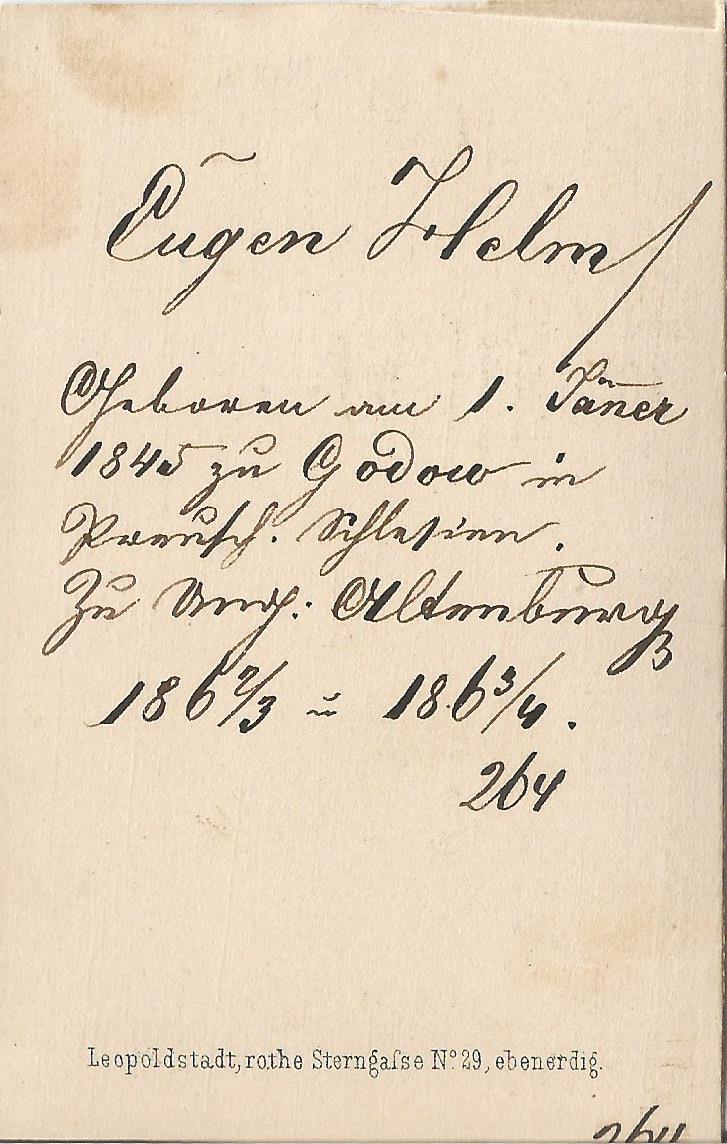 Eugen Helm
Geboren am 1. Jäner
1845 zu Godow in
Preusch. Schlesien.
Zu Ung: Altenburg
186 2/3 u 186 3/4.
264
Leopoldstadt, rothe Sterngasse No 29, ebenerdig.
264